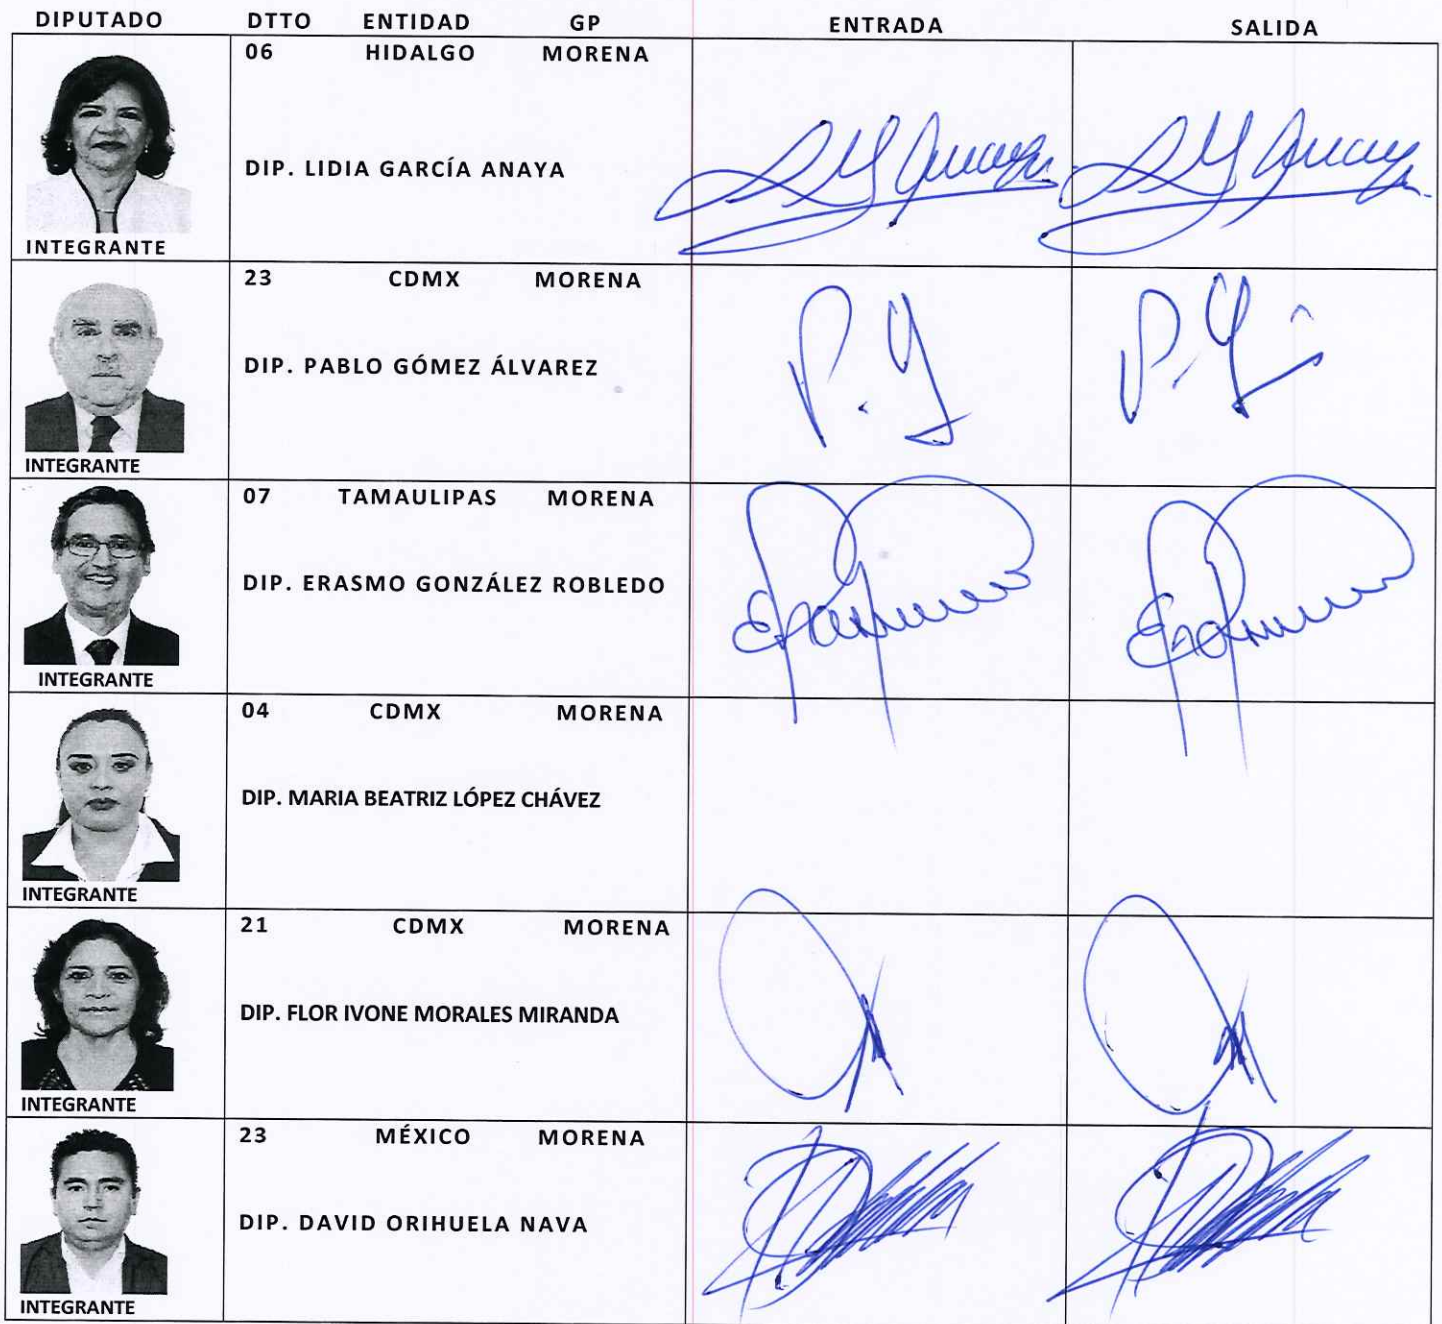 DIPUTADO DTTO ENTIDAD GP ENTRADA SALIDA
06 HIDALGO MORENA
DIP. LIDIA GARCÍA ANAYA
INTEGRANTE
23 CDMX MORENA
DIP. PABLO GÓMEZ ÁLVAREZ
P. G
P. G
INTEGRANTE
07 TAMAULIPAS MORENA
DIP. ERASMO GONZÁLEZ ROBLEDO
INTEGRANTE
04 CDMX MORENA
DIP. MARIA BEATRIZ LÓPEZ CHÁVEZ
INTEGRANTE
21 CDMX MORENA
DIP. FLOR IVONE MORALES MIRANDA
INTEGRANTE
23 MÉXICO MORENA
DIP. DAVID ORIHUELA NAVA
INTEGRANTE